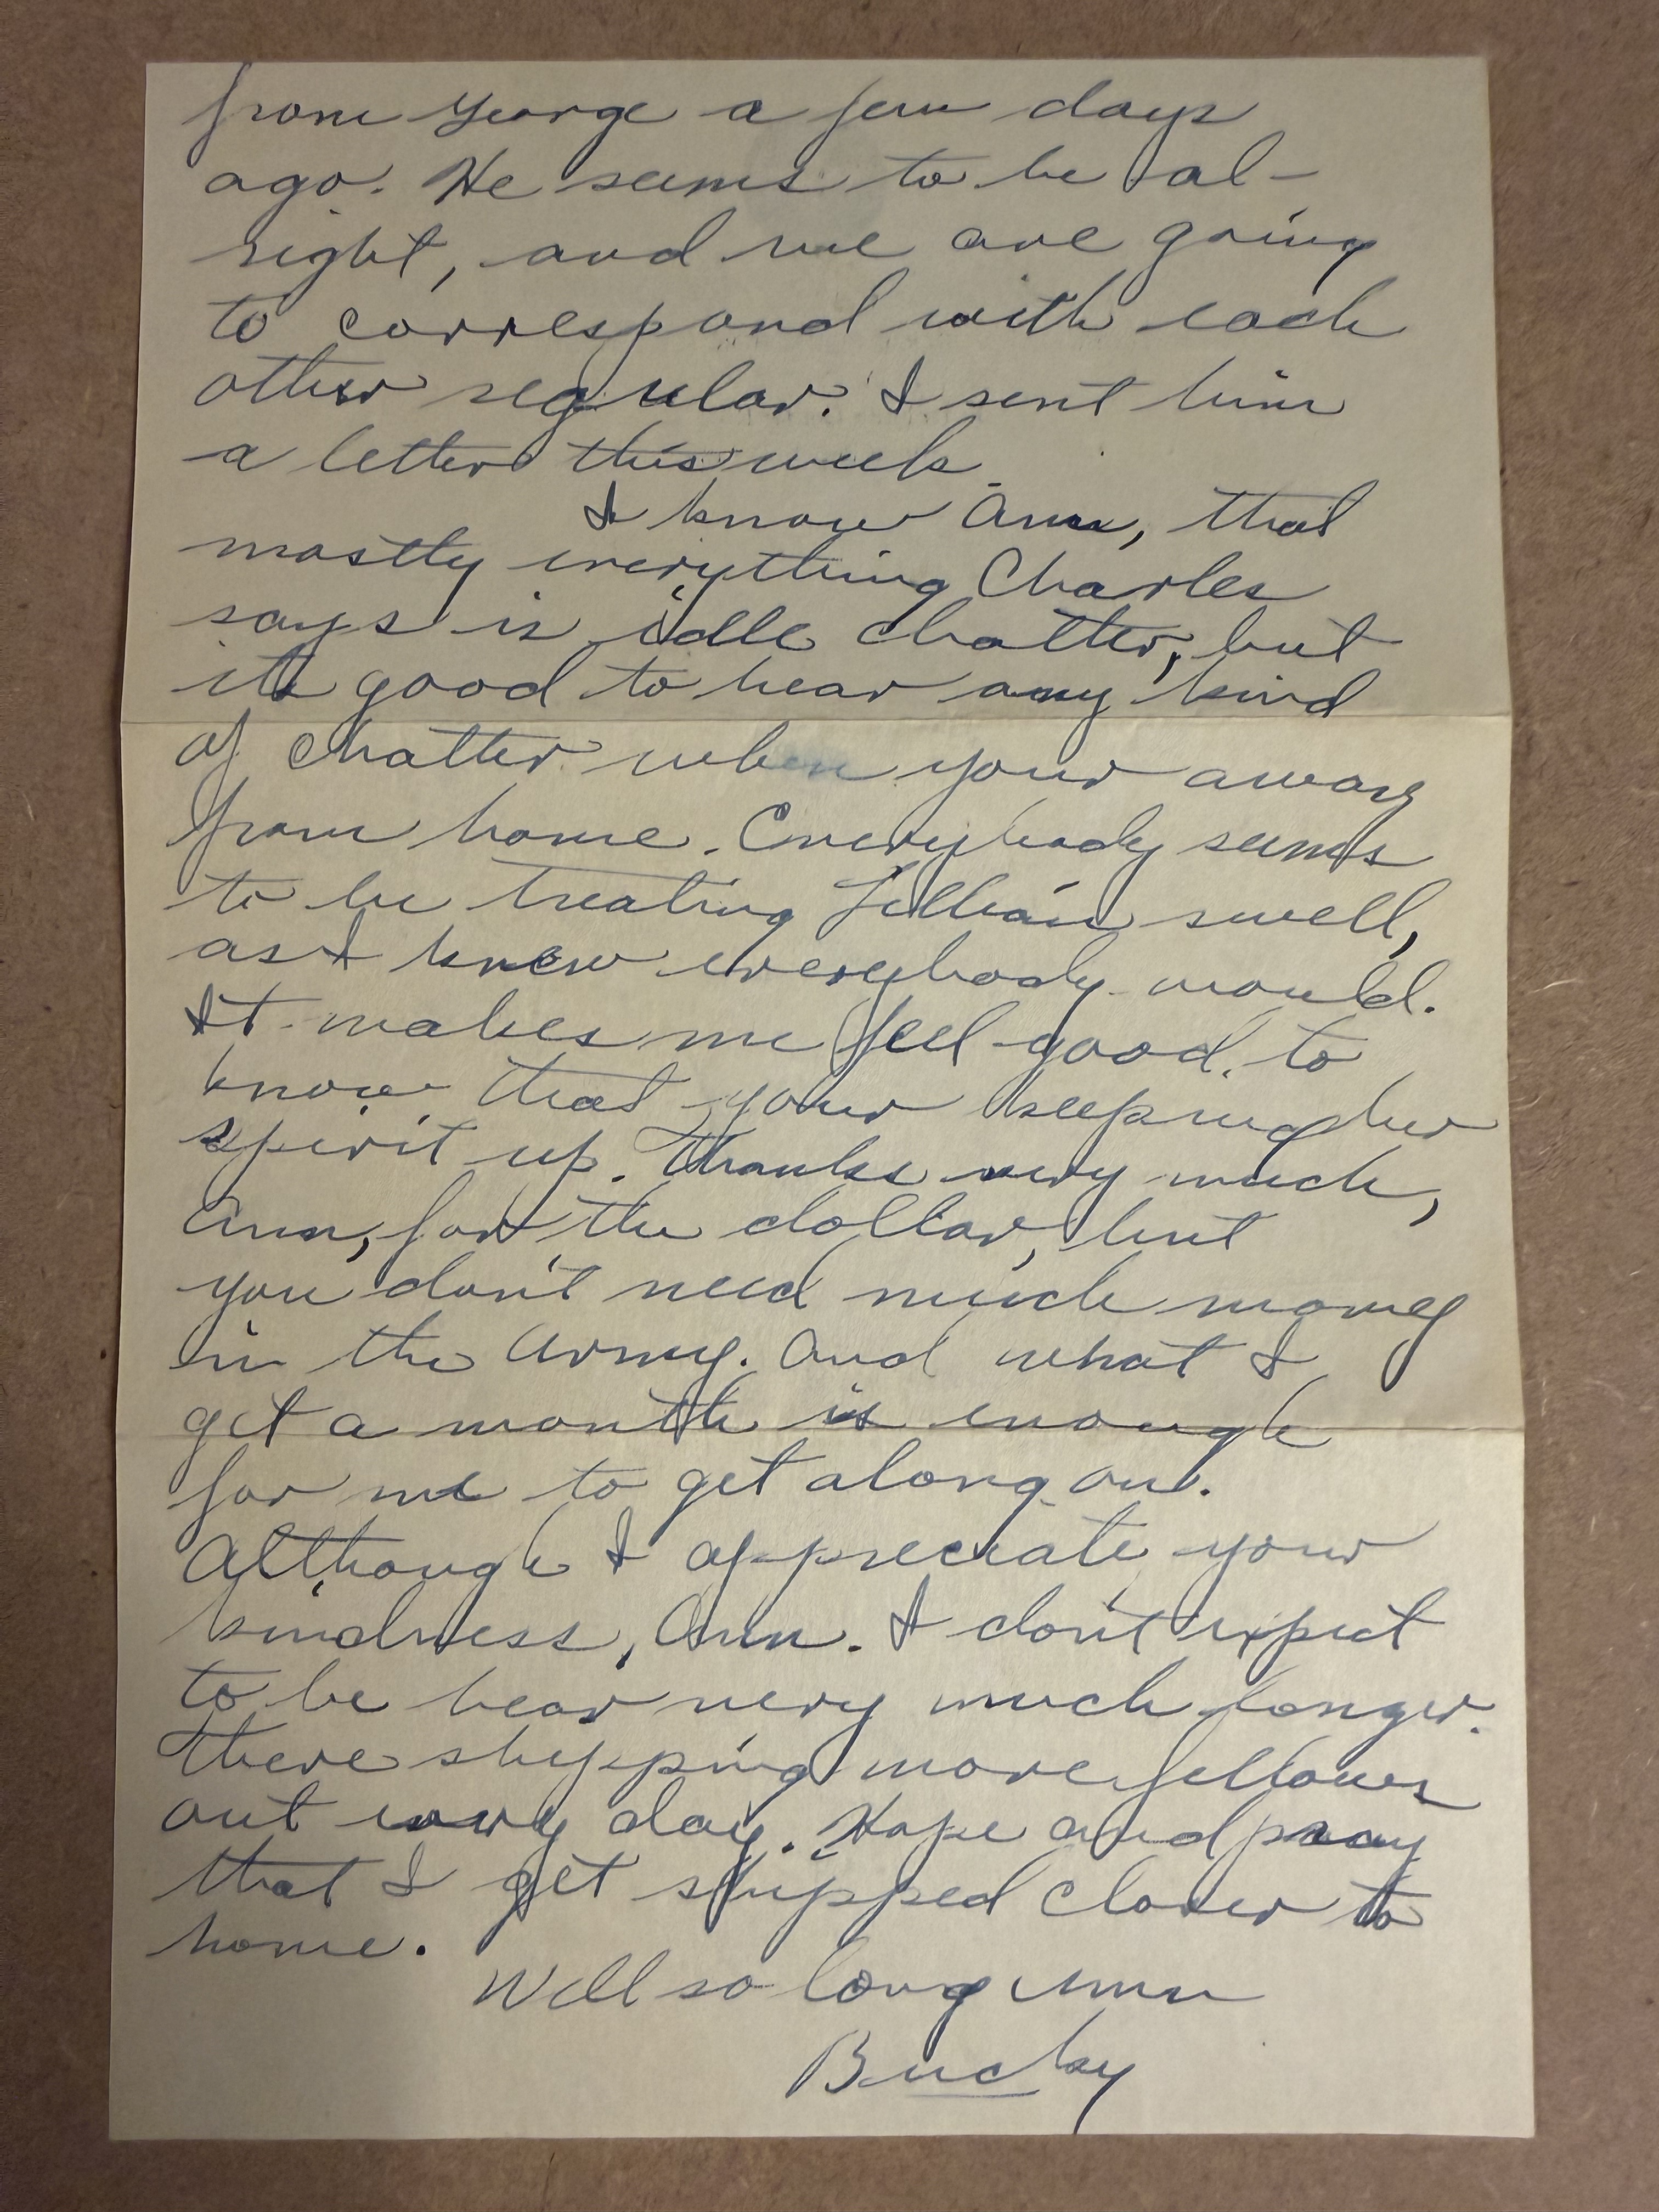 from George a few days
ago. He seems to be al-
right, and we are going
to correspond with each
other regular. I sent him
a letter this week.
I know Ann, that
mostly everything Charles
says is idle chatter, but
its good to hear any kind
of chatter when your away
from home. Everybody seems
to be treating Lillian swell,
as I knew everybody would.
It makes me feel good to
know that your keeping her
spirit up. Thanks very much,
Ann, for the dollar, but
you don't need much money
in the army. And what I
get a month is enough
for me to get along on.
Although I appreciate your
kindness, Ann. I don't expect
to be hear very much longer.
There shipping more fellows
out every day. Hope and pray
that I get shipped closer to
home.
Well so long Ann
Bucky